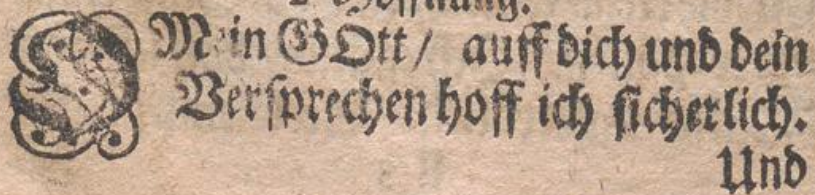 Hoffnung.
O Mein GOtt / auff dich und dein
Versprechen hoff ich sicherlich.
Und